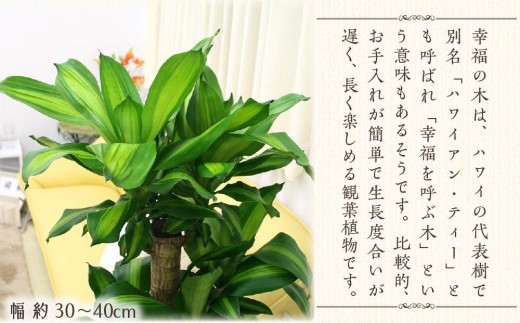 幸福の木は、ハワイの代表樹で
別名「ハワイアン・ティー」と
も呼ばれ「幸福を呼ぶ木」とい
う意味もあるそうです。比較的、
お手入れが簡単で生長度合いが
遅く、長く楽しめる観葉植物です。
幅 約 30～40cm